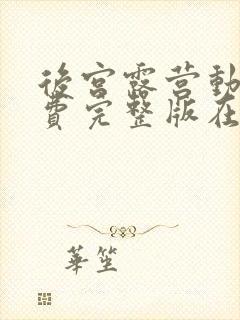 後宮露营動
費完整版在
華笙